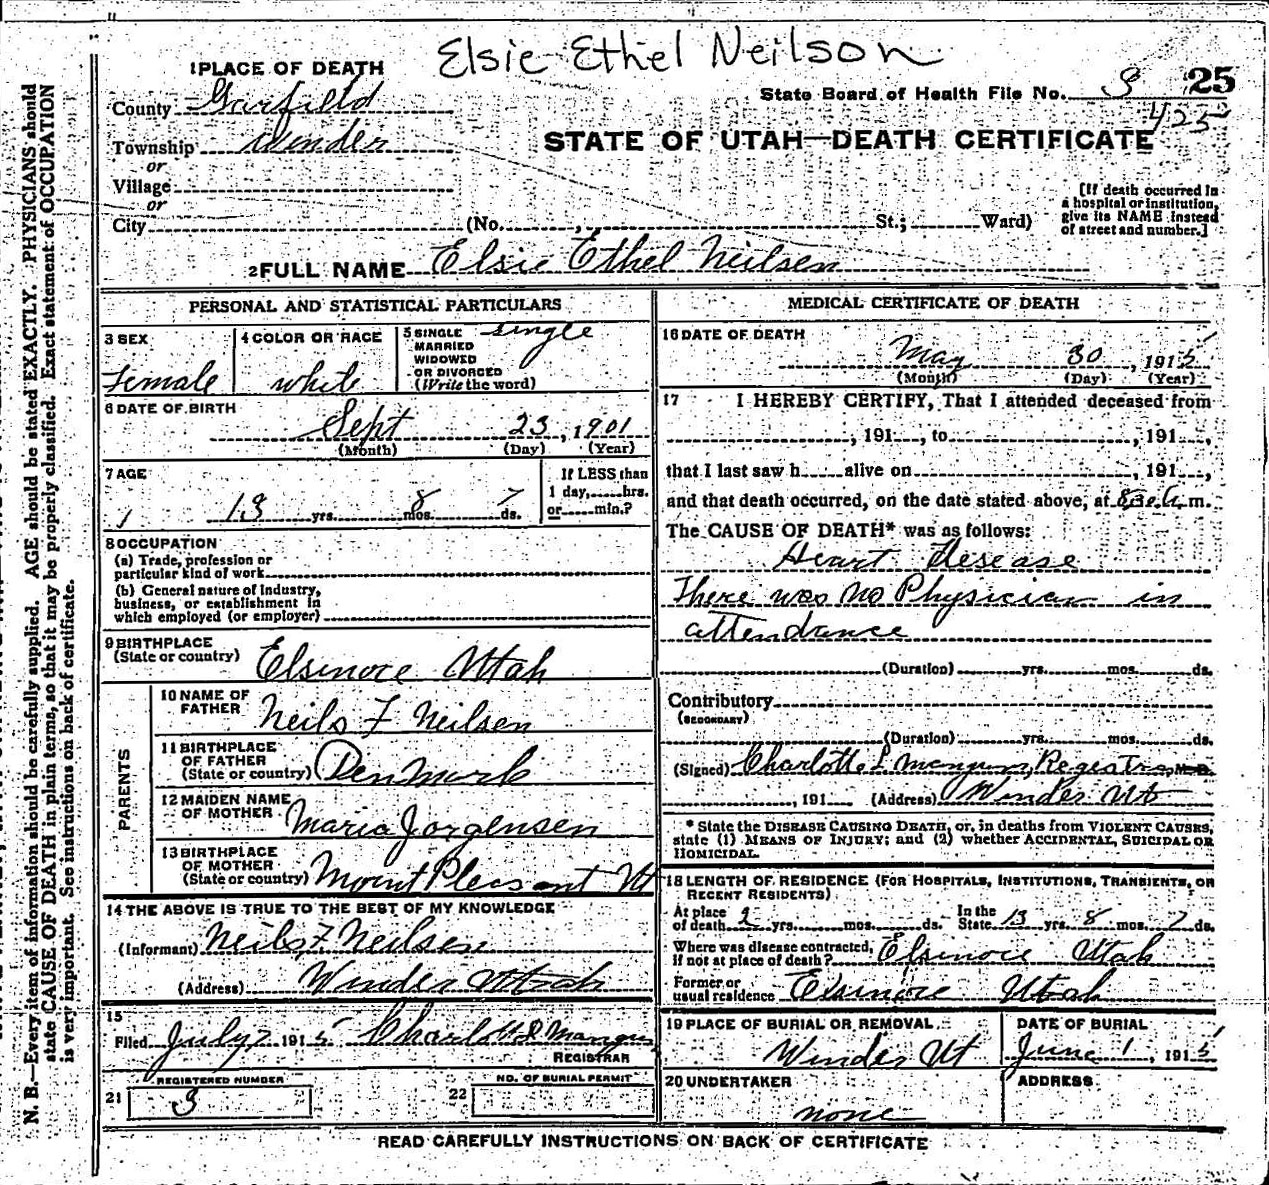 Elsie Ethel Neilson
1 PLACE OF DEATH
County Garfield
State Board of Health File No. 3 25
425
Township Winder
STATE OF UTAH—DEATH CERTIFICATE
or
Village
or
City (No. , St.; Ward)
[If death occurred in
a hospital or institution,
give its NAME instead
of street and number.]
2 FULL NAME Elsie Ethel Neilsen
PERSONAL AND STATISTICAL PARTICULARS
3 SEX
Female
4 COLOR OR RACE
white
5 SINGLE
MARRIED
WIDOWED
OR DIVORCED
(Write the word)
single
6 DATE OF BIRTH
Sept 23, 1901
(Month) (Day) (Year)
7 AGE
13 yrs. 8 mos. 7 ds.
If LESS than
1 day, hrs.
or min.?
8 OCCUPATION
(a) Trade, profession or
particular kind of work
(b) General nature of industry,
business, or establishment in
which employed (or employer)
9 BIRTHPLACE
(State or country) Elsinore Utah
PARENTS
10 NAME OF
FATHER Neils F Neilsen
11 BIRTHPLACE
OF FATHER
(State or country) Denmark
12 MAIDEN NAME
OF MOTHER Maria Jorgensen
13 BIRTHPLACE
OF MOTHER
(State or country) Mount Pleasant Ut
14 THE ABOVE IS TRUE TO THE BEST OF MY KNOWLEDGE
(Informant) Neils F Neilsen
(Address) Winder Utah
15
Filed July 7 1915 Charlott L Mangum
REGISTRAR
REGISTERED NUMBER
21 3
NO. OF BURIAL PERMIT
22
MEDICAL CERTIFICATE OF DEATH
16 DATE OF DEATH
May 30, 1915
(Month) (Day) (Year)
17 I HEREBY CERTIFY, That I attended deceased from
, 191 , to , 191 ,
that I last saw h alive on , 191 ,
and that death occurred, on the date stated above, at 830 A. m.
The CAUSE OF DEATH* was as follows:
Heart desease
There was no Physician in
attendance
(Duration) yrs. mos. ds.
Contributory
(SECONDARY)
(Duration) yrs. mos. ds.
(Signed) Charlotte L Mangum, Registra M. D.
, 191 (Address) Winder Ut
* State the DISEASE CAUSING DEATH, or, in deaths from VIOLENT CAUSES,
state (1) MEANS OF INJURY; and (2) whether ACCIDENTAL, SUICIDAL OR
HOMICIDAL.
18 LENGTH OF RESIDENCE (FOR HOSPITALS, INSTITUTIONS, TRANSIENTS, OR
RECENT RESIDENTS)
At place
of death 2 yrs. mos. ds. In the
State 13 yrs. 8 mos. 7 ds.
Where was disease contracted,
if not at place of death? Elsinore Utah
Former or
usual residence Elsinore Utah
19 PLACE OF BURIAL OR REMOVAL
Winder Ut
DATE OF BURIAL
June 1, 1915
20 UNDERTAKER
none
ADDRESS
READ CAREFULLY INSTRUCTIONS ON BACK OF CERTIFICATE
N. B.—Every item of information should be carefully supplied. AGE should be stated EXACTLY. PHYSICIANS should
state CAUSE OF DEATH in plain terms, so that it may be properly classified. Exact statement of OCCUPATION
is very important. See instructions on back of certificate.